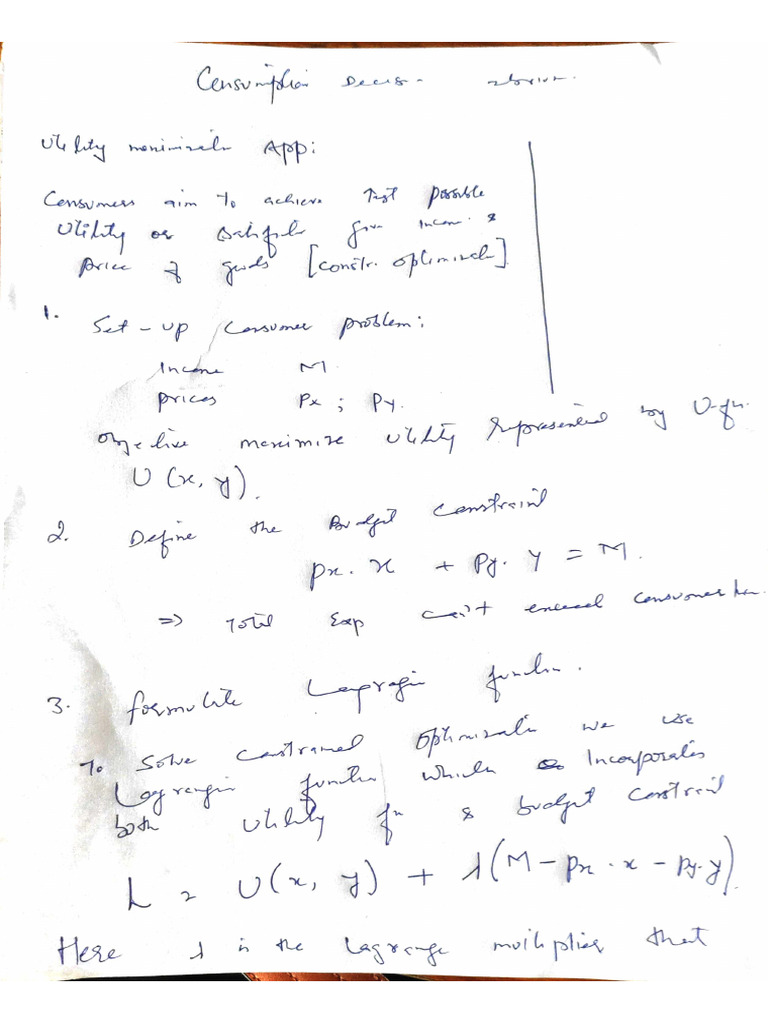 Consumption Decis-
Utility maximizatn App:
Consumers aim to achieve possible
Utility or Satisfactn given Income &
price of goods [constr. optimizatn]
1. Set-up Consumer problem:
Income M.
prices Px ; Py.
Objective maximize Utility represented by U-fn.
U (x, y).
2. Define the Budget Constraint
Px. x + Py. y = M.
=> Total Exp can't exceed consumer
3. formulate Lagrangin function.
To Solve constrained Optimizatn we use
Lagrangin function which Incorporates
both Utility fn & budget constraint
L = U(x, y) + λ(M - px . x - py. y).
Here λ is the Lagrange multiplier that